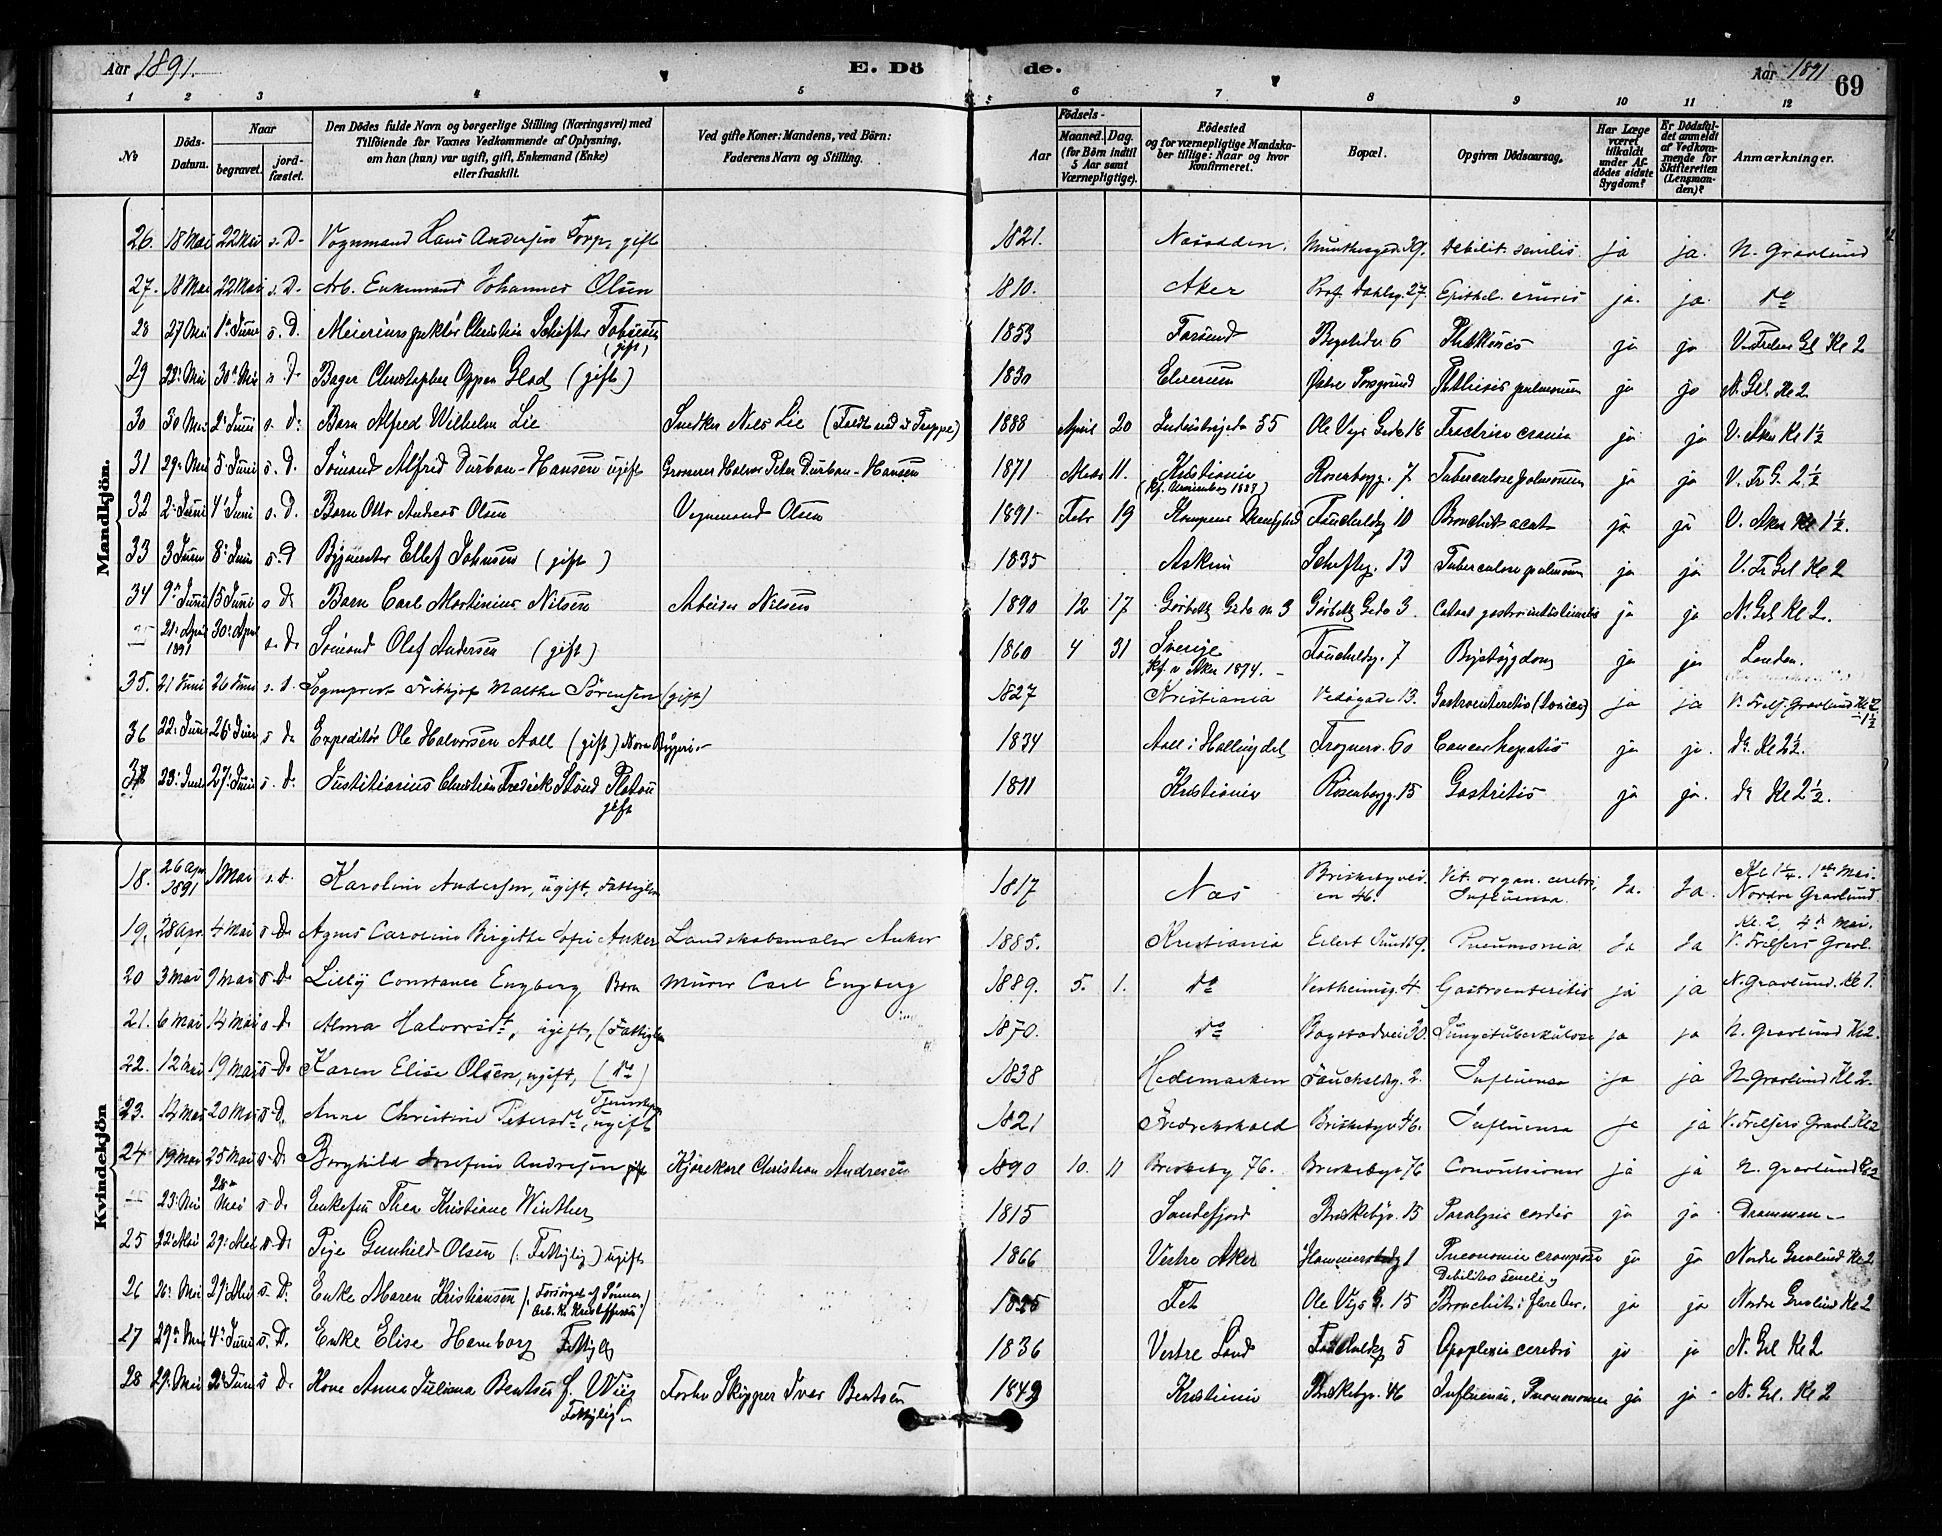 Aar 1891.
E. Dö de.
Aar 1891
69
1 2 3 4 5 5 6 7 8 9 10 11 12
No
Döds-Datum.
Naar
begravet.
jord-fæstet.
Den Dödes fulde Navn og borgerlige Stilling (Næringsvei) med
Tilföiende for Voxnes Vedkommende af Oplysning,
om han (hun) var ugift, gift, Enkemand (Enke)
eller fraskilt.
Ved gifte Koner: Mandens, ved Börn:
Faderens Navn og Stilling.
Födsels-
Aar
Maaned. Dag.
(for Börn indtil
5 Aar samt
Værnepligtige).
Födested
og for værnepligtige Mandska-
ber tillige: Naar og hvor
Konfirmeret.
Bopæl.
Opgiven Dödsaarsag.
Har Læge
været
tilkaldt
under Af-
dödes sidste
Sygdom?
Er Dödsfal-
det anmeldt
af Vedkom-
mende for
Skifteretten
(Lensman-
den)?
Anmærkninger.
Mandkjön.
26. 18 Mai 22 Mai s. D. Vognmand Hans Andersen Torp, gift 1821. Næsodden. 29. Debilit. senilis ja ja. N. Gravlund
27. 18 Mai 22 Mai s. D. Arb. Enkemand Johannes Olsen 1810. Aker Prof. Dahlsg. 27. Epithel. cruris ja. ja. do
28 27 Mai 1ste Juni s. D. Meieriinspektör Christian Schifter (gift) 1853 Farsund 6 ja ja V. Frelsers Gl Kl 2
29 22: Mai 30te Mai s. D. Bager Christopher Oppen Glad (gift) 1830 Elverum Østre Porsgrund Phthisis pulmonum ja ja N. Grl. Kl 2
30 30 Mai 2den Juni s. D. Barn Alfred Wilhelm Lie Snedker Nils Lie (Faldt ned af Trappe) 1888 April 20 Industrigade 55 Ole Vigs Gade 18 Fractura cranii ja ja V. Aker Kl 1½
31 29de Mai 5 Juni s. D. Sömand Alfred Durban-Hansen ugift Grosserer Halvor Peter Durban-Hansen 1871 11. Kristiania Rosenborgg. 7 Tuberculose pulmonum ja ja V. Fr G. 2½
32 2: Juni 4 Juni s. D. Barn Otto Andreas Olsen Vognmand Olsen 1891 Febr 19 Kampens Menighed Fauchaldsg 10 Bronchit acut ja ja V. Aker Kl 1½.
33 3 Juni 8: Juni s. D Ellef Johnsen (gift) 1835 Askim Schiftesg. 13 Tuberculose pulmonum ja ja V. Fr Grl Kl 2
34 9de Juni 15 Juni s. D. Barn Carl Martinius Nilsen Arbeider Nilsen 1890 12 17 Görbitz Gade no 3 Görbitz Gade 3. Catarr gastrointestinalis ja ja N. Grl Kl 2.
21: April 1891 30: April s. D. Sömand Olaf Andersen (gift) 1860 4 31 Sverige Kf. v Aker 1874. Fauchaldsg. 7 Brystsygdom ja ja London.
35. 21 Juni 26 Juni s. D. Sogneprest Frithjof Malthe Sörensen (gift) 1827 Kristiania 13. Gastroenteritis ja ja V. Frels. Gravlund Kl 1½
36 22: Juni 26 Juni s D. Expeditör Ole Halvorsen Aall (gift) 1834 Aall i Hallingdal Frognerv. 60 Cancer hepatis ja ja. do Kl 2½.
37 23: Juni 27: Juni s. D. Justitiarius Christian Fredrik Stoud Platou gift 1811 Kristiania Rosenborgg. 15 Gastritis ja ja. do Kl 2½.
Kvindekjön
18. 26 Apr 1891 1 Mai s. D. Karoline Andersen, ugift, Fattiglem 1817 Næs Briskebyvei-en 46. Vit. organ. cerebri, Influensa Ja. Ja. Kl 1¼. 1ste Mai. Nordre Gravlund
19. 28 Apr. 4 Mai s. D. Agnes Caroline Birgitte Sofie Anker Landskabsmaler Anker 1885. Kristiania Eilert Sunds 9. Pneumonia Ja Ja Kl. 2 4de Mai. V. Frelsers Gravl.
20 3 Mai 9 Mai s. D. Lilly Constance Engberg Barn Murer Carl Engberg 1889. 5. 1. do Vestheimsg. 4 Gastroenteritis ja ja N. Gravlund. Kl 1.
21. 6 Mai 14 Mai s. D. Alma Halvorsdt., ugift, (Fattiglem 1870. do Bogstadvei 20. Lungetuberkulose ja ja N. Gravlund Kl 2.
22. 12 Mai 19 Mai s. D. Karen Elise Olsen, ugift, (do) 1838 Hedemarken Fauchaldsg. 2. Influensa ja ja N. Gravlund Kl 2.
23. 14 Mai 20 Mai s. D. Anne Christine Petersdt, ugift 1821 Fredrikshald Briskebyv 46. Influensa ja ja V. Frelsers Gravl. Kl 2
24 19 Mai 25 Mai s. D Borghild Josefine Andresen Kjörekarl Christian Andresen 1890 10. 11 Briskeby 76. Briskebyv 76 Convulsioner ja ja N. Gravlund Kl 2
23: Mai 28de Mai s. D. Enkefru Thea Kristiane Winther 1815 Sandefjord Briskebyv. 15 Paralysis cordis ja ja Drammen
25 22: Mai 29: Mai s. D. Pige Gunhild Olsen (: Fattiglig) ugift 1866 Vestre Aker Pneumonia crouposa ja ja Nordre Gravlund Kl 2
26 26: Mai 29: Mai s. D. Enke Maren Kristiansen (: Forsörget af Sönnen Arb. K. Kristoffersen) Fet Ole Vigs G. 15 Debilitas senilis Bronchit i flere Aar. ja ja Nordre Gravlund Kl 2
27 29de Mai 4: Juni s. D. Enke Elise Hamborg Fattiglig 1836 Vestre Land 5 Apoplexia cerebri ja ja N. Grl Kl 2
28 29: Mai Juni s D. Kone Anna Juliana Bentsen f. Wiig Fattiglig Skipper Ivar Bentsen 1849 Kristiania Briskebyv. 46 Influensa, Pneumonia ja ja N. Grl. Kl 2